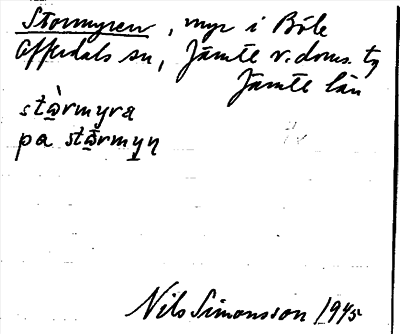 Stormyren, myr i Böle
Offerdals sn, Jämte v. doms. tg
Jämte län
stɷ̀rmyra
pa stɷ̄rmyn
Nils Simonsson 1945